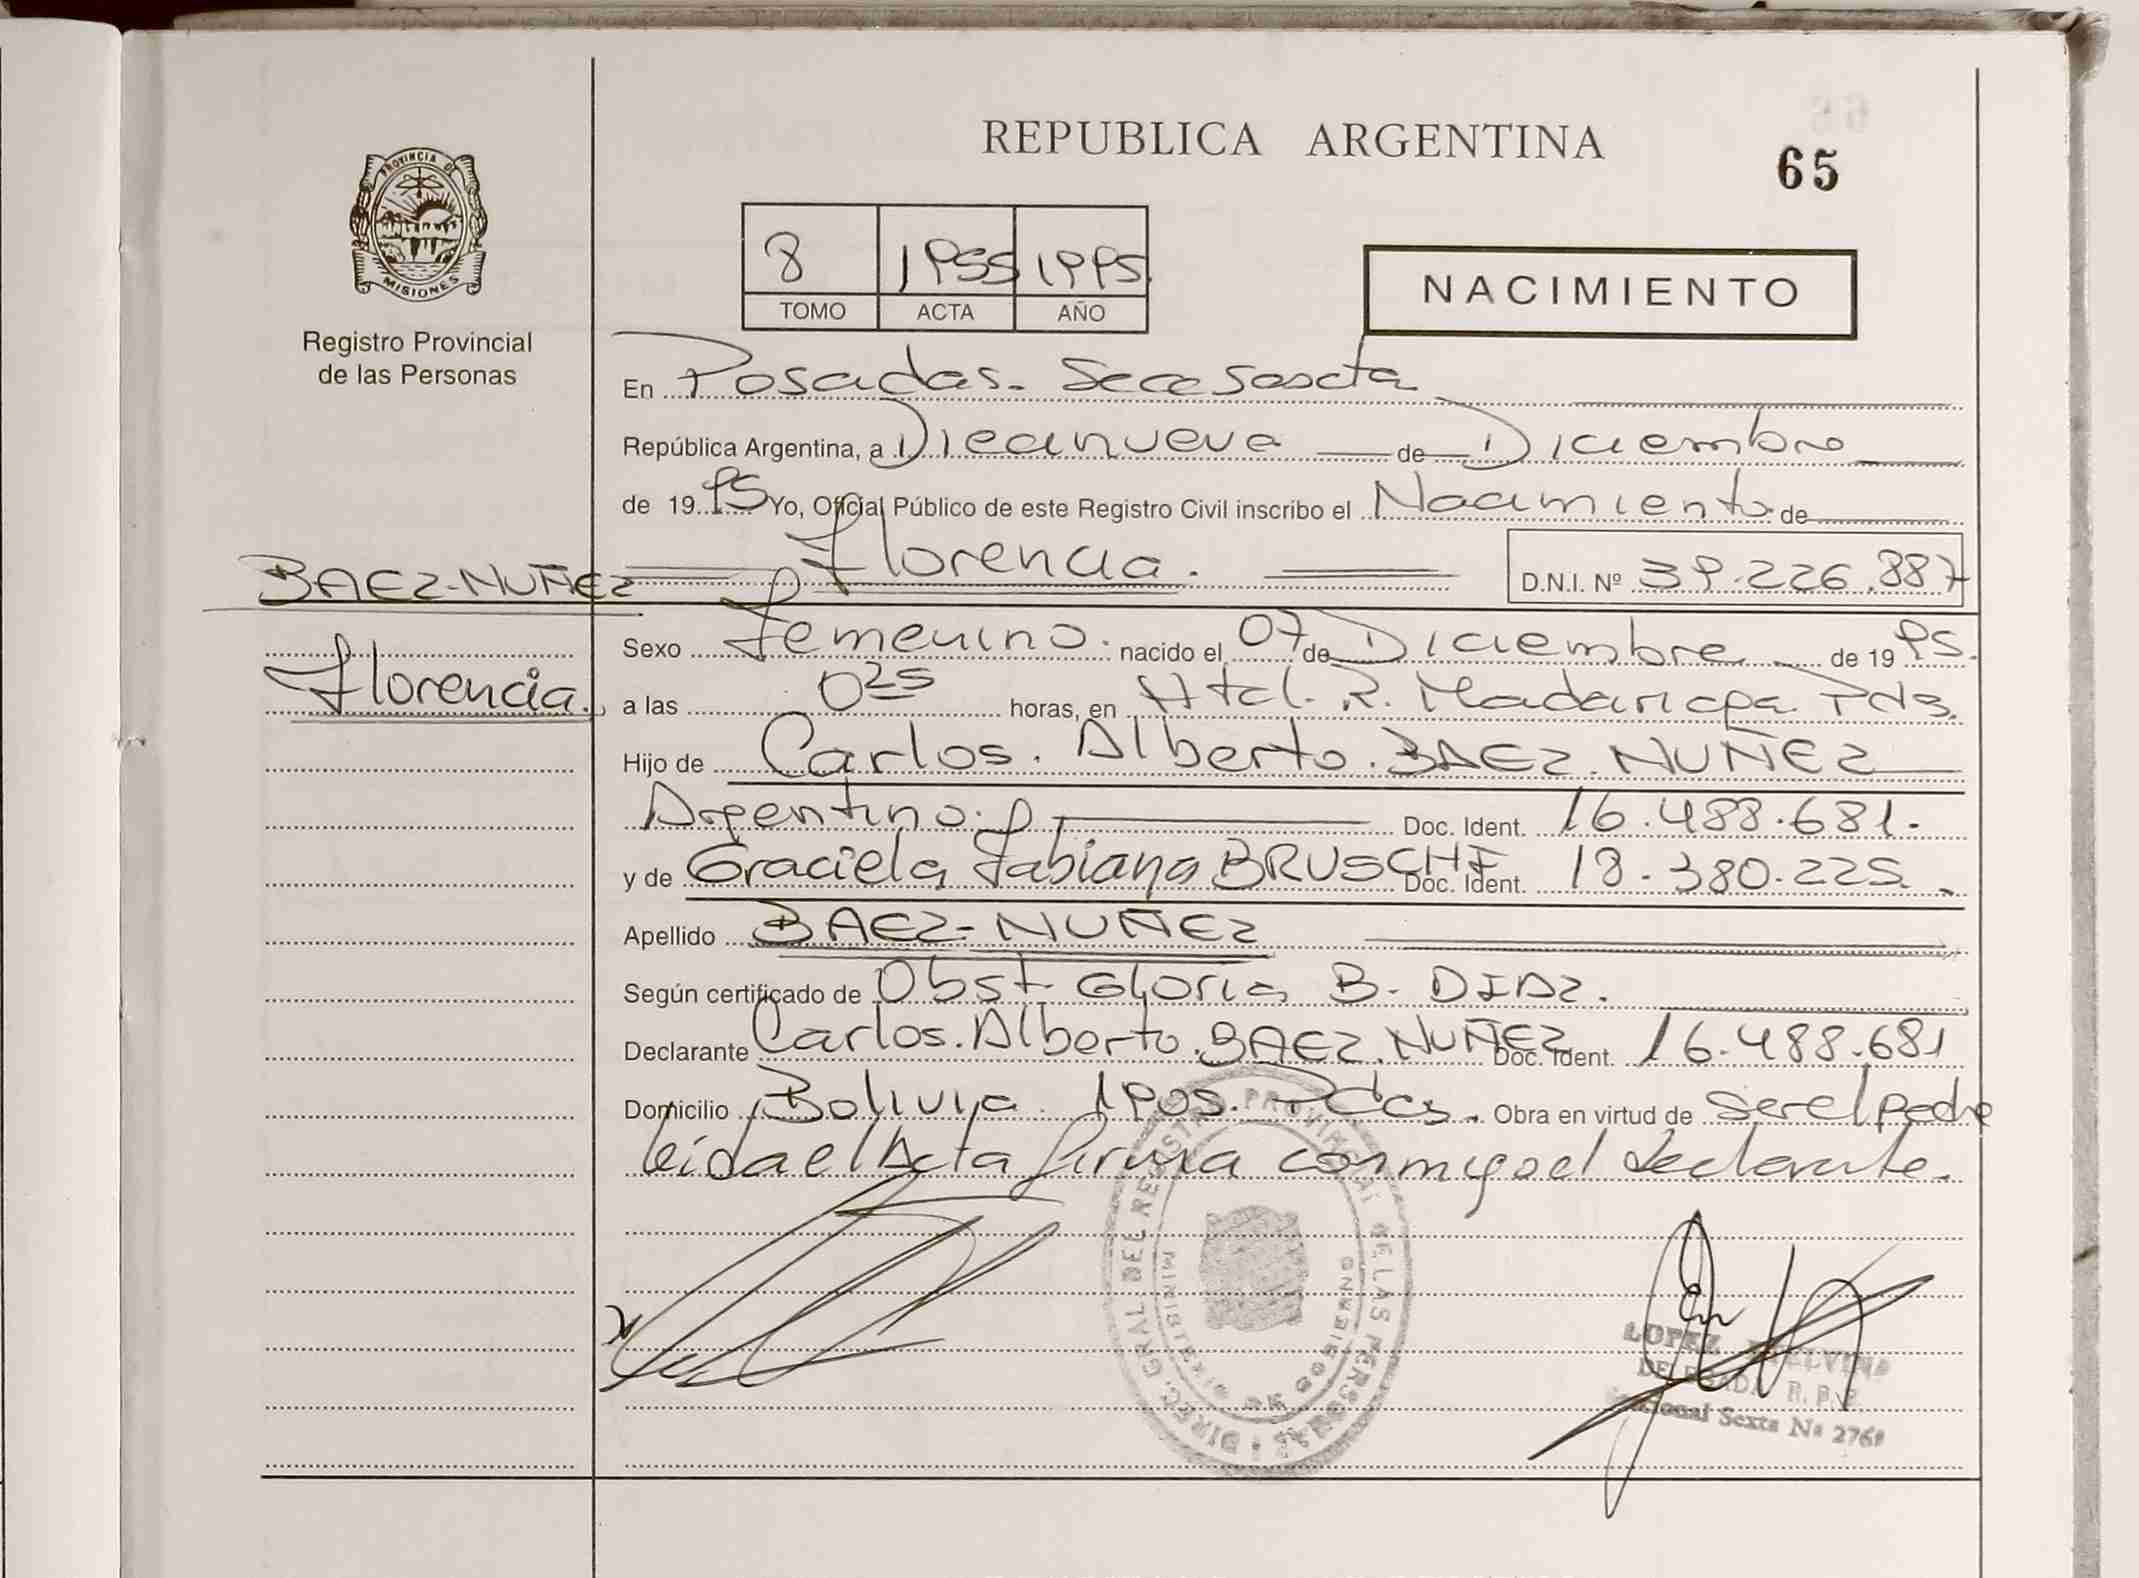 REPUBLICA ARGENTINA
65
PROVINCIA DE
MISIONES
Registro Provincial
de las Personas
8 1955 1995
TOMO ACTA AÑO
NACIMIENTO
En Posadas. Secc Sexta
República Argentina, a Diecinueve de Diciembre
de 1995 Yo, Oficial Público de este Registro Civil inscribo el Nacimiento de
Florencia. D.N.I. Nº 39.226.887
BAEZ-NUÑEZ
Florencia.
Sexo Femenino. nacido el 07 de Diciembre de 1995.
a las 0 25 horas, en Htal. R. Madariaga Pds.
Hijo de Carlos. Alberto. BAEZ. NUÑEZ
Argentino. Doc. Ident. 16.488.681.
y de Graciela Fabiana Doc. Ident. 18.380.225.
Apellido BAEZ-NUÑEZ
Según certificado de Obst. Gloria B. DIAZ.
Declarante Carlos. Alberto. BAEZ. NUÑEZ Doc. Ident. 16.488.681
Domicilio Bolivia Pdas. Obra en virtud de ser el padre
leida el Acta firma conmigo el declarante.
DIREC. GRAL. DEL REGISTRO PROVINCIAL DE LAS PERSONAS
MINISTERIO DE GOBIERNO
LOPEZ
DELEGADA R.P.P.
Seccional Sexta Nº